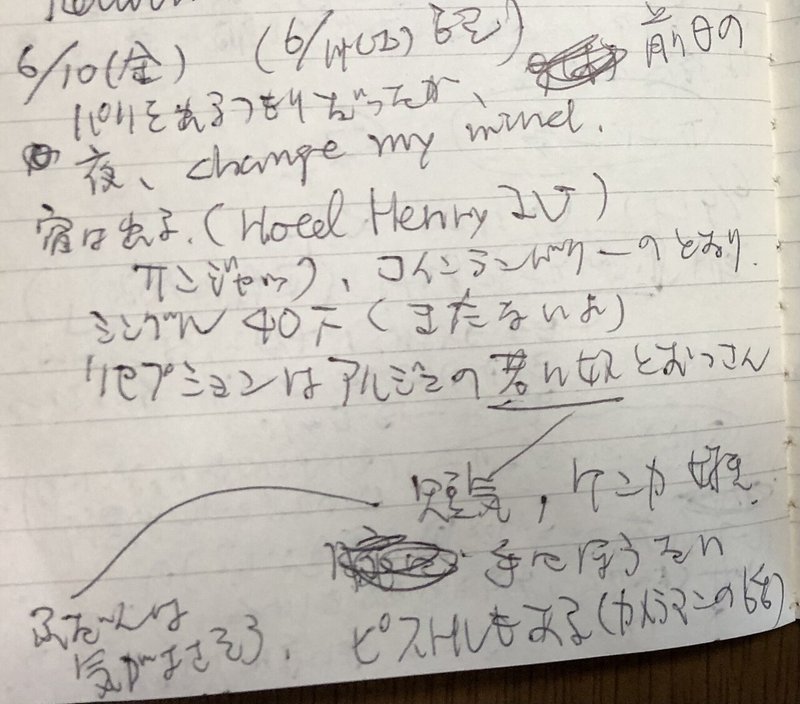 Return
6/10(金) (6/14(火) 記) 前日の
パリを出るつもりだったが、
夜、change my mind.
宿は出る.(Hotel Henry IV)
コインランドリーのとなり.
シングル 40F (まだないよ)
リセプションはアルジェの若い奴とおっさん
短気, ケンカ好き.
手にほうたい
ふだんは
気がよさそう.
ピストルもある(カメラマンの話)